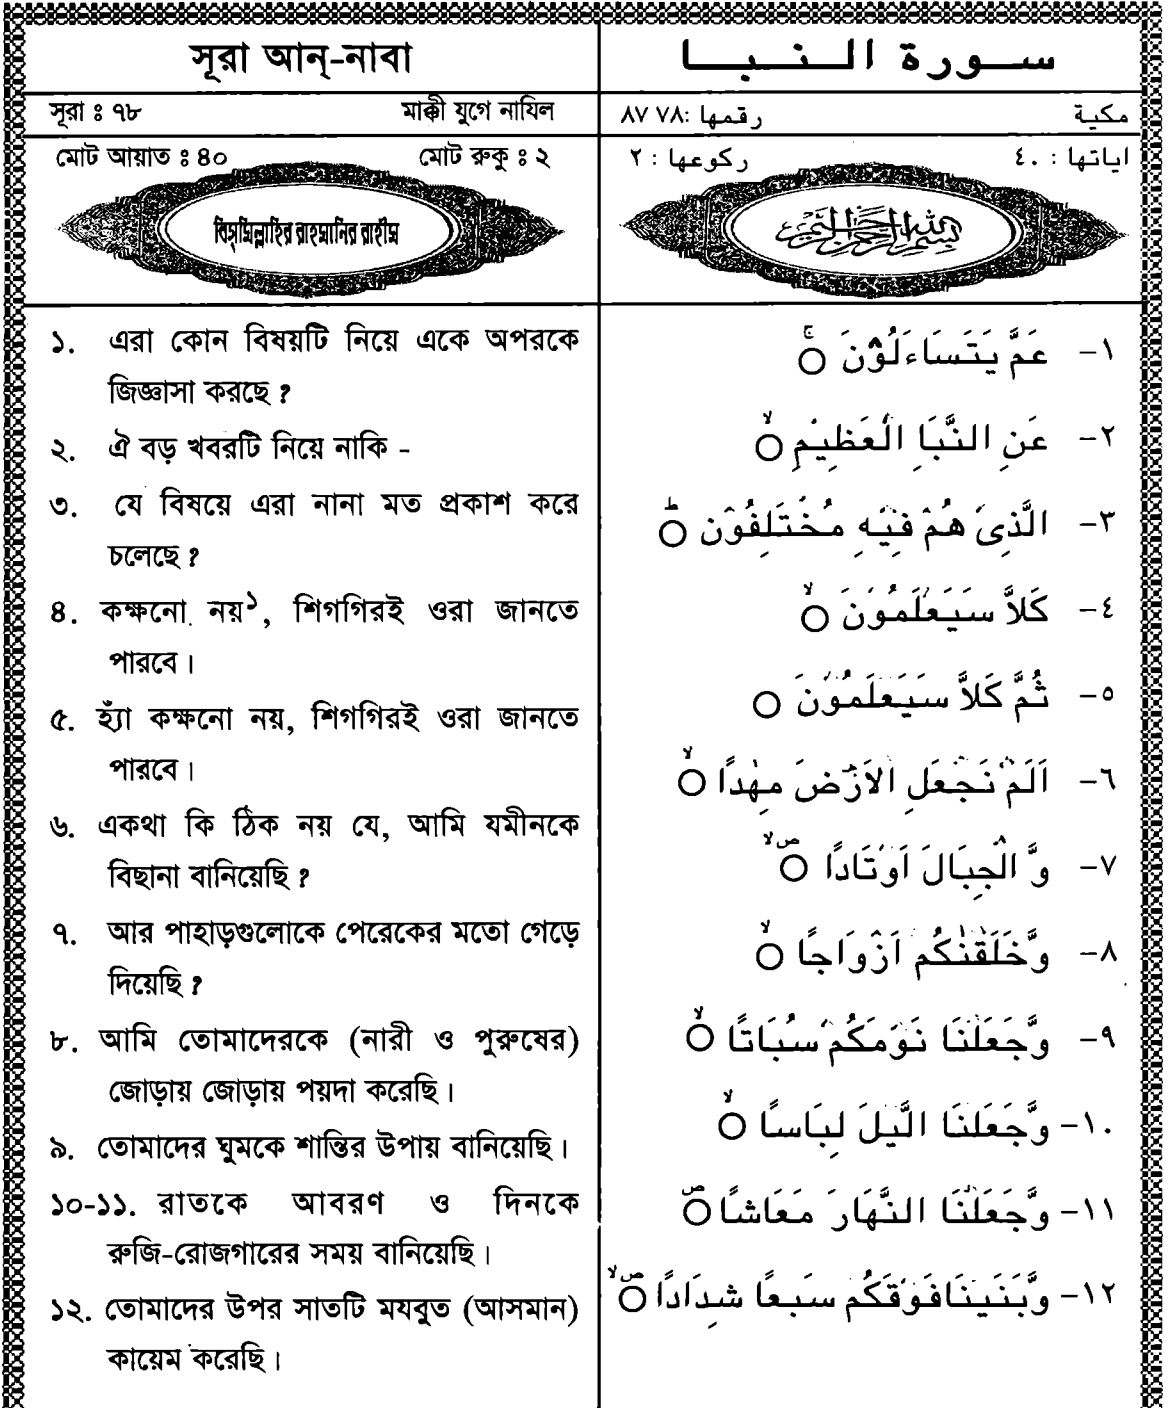 সূরা আন্-নাবা
সূরা ঃ ৭৮ মাক্কী যুগে নাযিল
মোট আয়াত ঃ ৪০ মোট রুকু ঃ ২
বিস্‌মিল্লাহির রাহমানির রাহীম
১. এরা কোন বিষয়টি নিয়ে একে অপরকে
জিজ্ঞাসা করছে ?
২. ঐ বড় খবরটি নিয়ে নাকি -
৩. যে বিষয়ে এরা নানা মত প্রকাশ করে
চলেছে ?
৪. কক্ষনো নয়১, শিগগিরই ওরা জানতে
পারবে।
৫. হ্যাঁ কক্ষনো নয়, শিগগিরই ওরা জানতে
পারবে।
৬. একথা কি ঠিক নয় যে, আমি যমীনকে
বিছানা বানিয়েছি ?
৭. আর পাহাড়গুলোকে পেরেকের মতো গেড়ে
দিয়েছি ?
৮. আমি তোমাদেরকে (নারী ও পুরুষের)
জোড়ায় জোড়ায় পয়দা করেছি।
৯. তোমাদের ঘুমকে শান্তির উপায় বানিয়েছি।
১০-১১. রাতকে আবরণ ও দিনকে
রুজি-রোজগারের সময় বানিয়েছি।
১২. তোমাদের উপর সাতটি মযবুত (আসমান)
কায়েম করেছি।
سورة النبا
مكية رقمها: ٧٨ ٨٧
اياتها : ٤٠ ركوعها : ٢
بسم الله الرحمن الرحيم
١- عَمَّ يَتَسَاءَلُوْنَ ۚ
٢- عَنِ النَّبَاِ الْعَظِيْمِ ۙ
٣- الَّذِىْ هُمْ فِيْهِ مُخْتَلِفُوْنَ ؕ
٤- كَلَّا سَيَعْلَمُوْنَ ۙ
٥- ثُمَّ كَلَّا سَيَعْلَمُوْنَ ○
٦- اَلَمْ نَجْعَلِ الْاَرْضَ مِهٰدًا ۙ
٧- وَّ الْجِبَالَ اَوْتَادًا ۪ۙ
٨- وَّخَلَقْنٰكُمْ اَزْوَاجًا ۙ
٩- وَّجَعَلْنَا نَوْمَكُمْ سُبَاتًا ۙ
١٠- وَّجَعَلْنَا الَّيْلَ لِبَاسًا ۙ
١١- وَّجَعَلْنَا النَّهَارَ مَعَاشًا ۪
١٢- وَّبَنَيْنَا فَوْقَكُمْ سَبْعًا شِدَادًا ۪ۙ